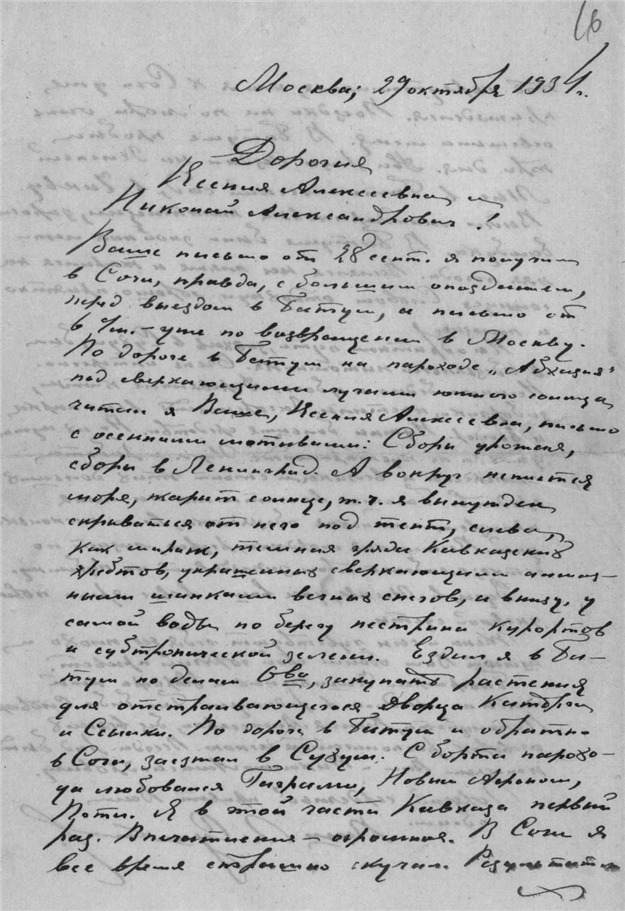 16
Москва, 29 октября 1934 г.
Дорогия
Ксения Алексеевна и
Николай Александрович!
Ваше письмо от 28 сент. я получил
в Сочи, правда, с большим опозданием,
перед выездом в Батум, а письмо от
уже по возвращении в Москву.
По дороге в Батум на пароходе „Абхазия“
под сверкающими лучами южного солнца
читал я Ваше, Ксения Алексеевна, письмо
с осенними мотивами: Сборы урожая,
сборы в Ленинград. А вокруг
море, жарит солнце, т.ч. я вынужден
скрываться от него под тент, слева,
как мираж, темная гряда Кавказских
хребтов, украшенных сверкающими
шапками вечных снегов, и внизу, у
самой воды по берегу пестрина курортов
и субтропической зелени. Ездил я в Ба-
тум по делам О-ва, закупать растения
для отстраивающегося Дворца Культуры
и Связи. По дороге в Батум и обратно
в Сочи, заезжал в Сухум. С борта парохо-
да любовался Гаграми, Новым Афоном,
Поти. Я в этой части Кавказа первый
раз. Впечатление – огромное. В Сочи я
все время страшно скучал. Результатом